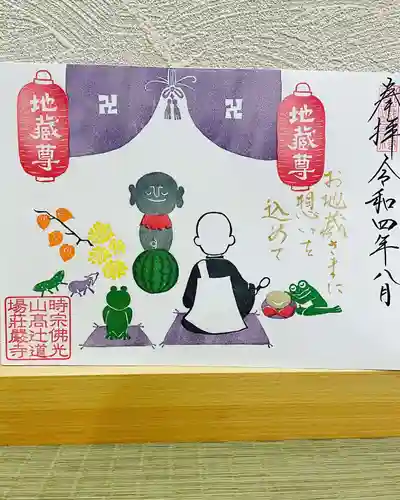 奉拝
令和四年八月
地蔵尊
地蔵尊
卍
卍
お地蔵さまに
想いを
込めて
時宗佛光
山高辻道
場莊嚴寺